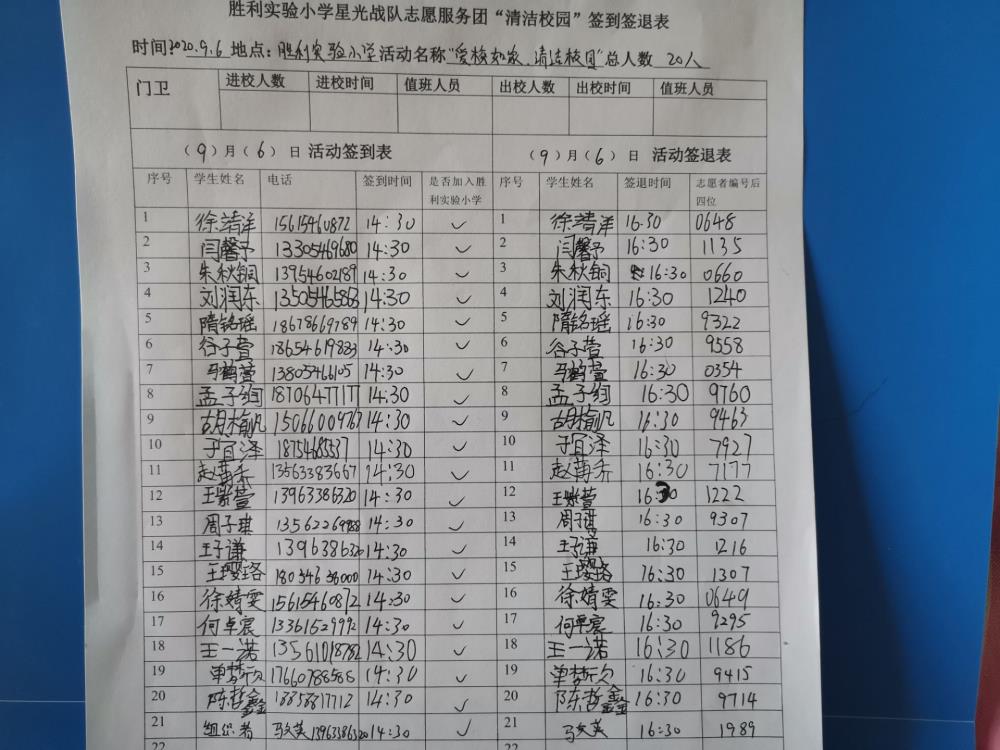 胜利实验小学星光战队志愿服务团“清洁校园”签到签退表
时间:2020.9.6 地点:胜利实验小学活动名称“爱校如家,清洁校园”总人数 20人
门卫 进校人数 进校时间 值班人员 出校人数 出校时间 值班人员
(9)月(6)日 活动签到表 (9)月(6)日 活动签退表
序号 学生姓名 电话 签到时间 是否加入胜利实验小学 序号 学生姓名 签退时间 志愿者编号后四位
1 徐靖洋 15615460872 14:30 ✓ 1 徐靖洋 16:30 0648
2 闫馨予 13305469680 14:30 ✓ 2 闫馨予 16:30 1135
3 朱秋铜 13954602189 14:30 ✓ 3 朱秋铜 16:30 0660
4 刘润东 13505465853 14:30 ✓ 4 刘润东 16:30 1240
5 隋铭瑶 18678669789 14:30 ✓ 5 隋铭瑶 16:30 9322
6 谷子萱 18654619833 14:30 ✓ 6 谷子萱 16:30 9558
7 马鹤萱 13805466105 14:30 ✓ 7 马鹤萱 16:30 0354
8 孟子绚 18706477177 14:30 ✓ 8 孟子绚 16:30 9760
9 胡榆凡 15066004767 14:30 ✓ 9 胡榆凡 16:30 9463
10 于宜泽 14:30 ✓ 10 于宜泽 16:30 7927
11 13563383667 14:30 ✓ 11 16:30 7177
12 王紫萱 13963386320 14:30 ✓ 12 王紫萱 16:30 1222
13 周子琪 14:30 ✓ 13 周子琪 16:30 9307
14 王子谦 14:30 ✓ 14 王子谦 16:30 1216
15 王璎珞 14:30 ✓ 15 王璎珞 16:30 1307
16 徐婧雯 15615460872 14:30 ✓ 16 徐婧雯 16:30 0649
17 何卓宸 13361529992 14:30 ✓ 17 何卓宸 16:30 9295
18 王一诺 13561018782 14:30 ✓ 18 王一诺 16:30 1186
19 单梦欣 17660788588 14:30 ✓ 19 单梦欣 16:30 9415
20 陈哲鑫 18858817712 14:30 ✓ 20 陈哲鑫 16:30 9714
21 组织者 马文英 13963386320 14:30 ✓ 21 马文英 16:30 1989
22 22